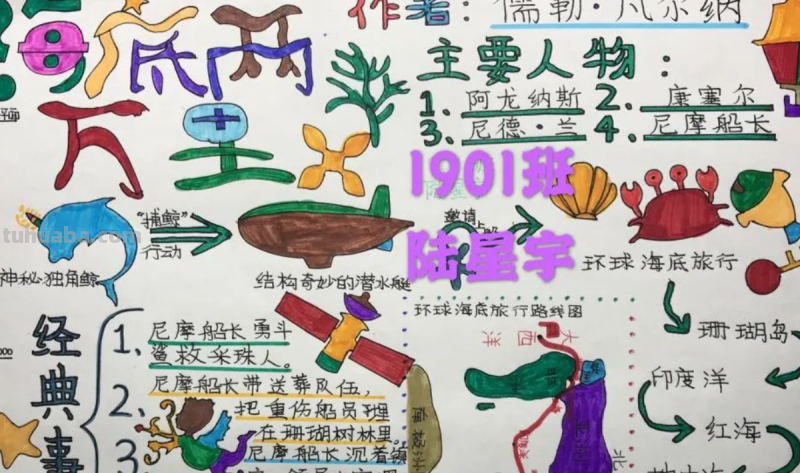 作者：儒勒·凡尔纳
海底两
万里
主要人物：
1、阿龙纳斯 2、康塞尔
3、尼德·兰 4、尼摩船长
1901班
陆星宇
tuhuaba.com
"捕鲸"
行动
邀请
神秘独角鲸
结构奇妙的潜水艇
环球海底旅行
环球海底旅行路线图
大西洋
珊瑚岛
印度洋
红海
经典事
1、尼摩船长勇斗
鲨救采珠人。
2、尼摩船长带送葬队伍，
把重伤船员埋
在珊瑚树林里。
3、尼摩船长沉着